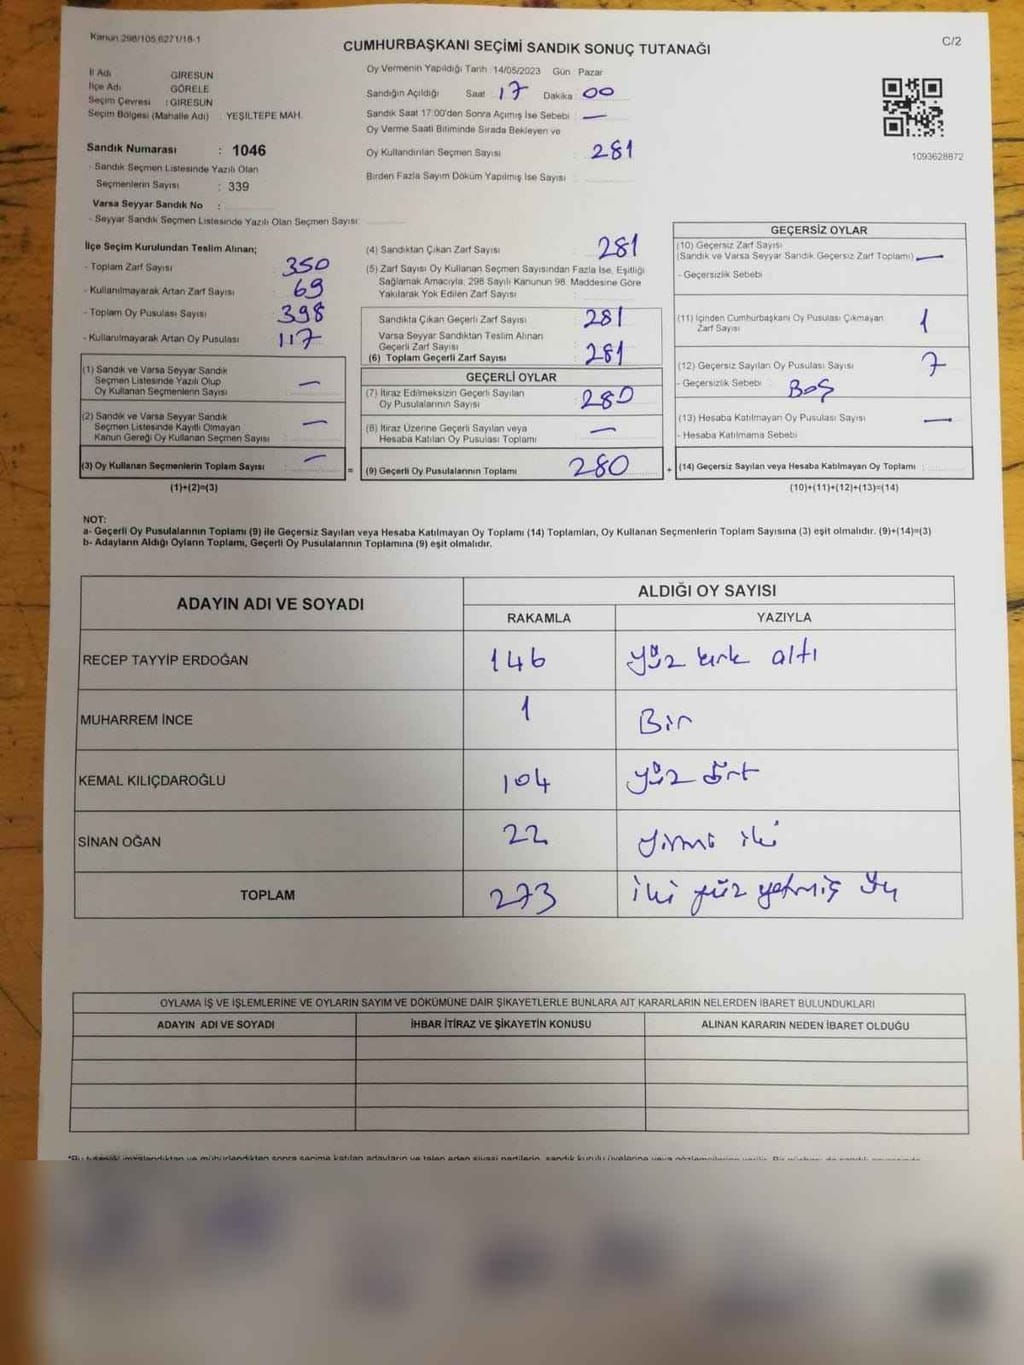 Kanun 298/105,6271/18-1
C/2
CUMHURBAŞKANI SEÇİMİ SANDIK SONUÇ TUTANAĞI
İl Adı : GİRESUN
İlçe Adı : GÖRELE
Seçim Çevresi : GİRESUN
Seçim Bölgesi (Mahalle Adı) : YEŞİLTEPE MAH.
Sandık Numarası : 1046
- Sandık Seçmen Listesinde Yazılı Olan
Seçmenlerin Sayısı : 339
Varsa Seyyar Sandık No :
- Seyyar Sandık Seçmen Listesinde Yazılı Olan Seçmen Sayısı:
Oy Vermenin Yapıldığı Tarih :14/05/2023 Gün : Pazar
Sandığın Açıldığı Saat : 17 Dakika : 00
Sandık Saat 17:00'den Sonra Açımış İse Sebebi : —
Oy Verme Saati Bitiminde Sırada Bekleyen ve
Oy Kullandırılan Seçmen Sayısı : 281
Birden Fazla Sayım Döküm Yapılmış İse Sayısı :
1093628872
İlçe Seçim Kurulundan Teslim Alınan;
- Toplam Zarf Sayısı : 350
- Kullanılmayarak Artan Zarf Sayısı : 69
- Toplam Oy Pusulası Sayısı : 398
- Kullanılmayarak Artan Oy Pusulası : 117
(1) Sandık ve Varsa Seyyar Sandık
Seçmen Listesinde Yazılı Olup
Oy Kullanan Seçmenlerin Sayısı : —
(2) Sandık ve Varsa Seyyar Sandık
Seçmen Listesinde Kayıtlı Olmayan
Kanun Gereği Oy Kullanan Seçmen Sayısı : —
(3) Oy Kullanan Seçmenlerin Toplam Sayısı : —
(1)+(2)=(3)
(4) Sandıktan Çıkan Zarf Sayısı : 281
(5) Zarf Sayısı Oy Kullanan Seçmen Sayısından Fazla İse, Eşitliği
Sağlamak Amacıyla, 298 Sayılı Kanunun 98. Maddesine Göre
Yakılarak Yok Edilen Zarf Sayısı :
Sandıkta Çıkan Geçerli Zarf Sayısı : 281
Varsa Seyyar Sandıktan Teslim Alınan
Geçerli Zarf Sayısı
(6) Toplam Geçerli Zarf Sayısı : 281
GEÇERLİ OYLAR
(7) İtiraz Edilmeksizin Geçerli Sayılan
Oy Pusulalarının Sayısı : 280
(8) İtiraz Üzerine Geçerli Sayılan veya
Hesaba Katılan Oy Pusulası Toplamı : —
= (9) Geçerli Oy Pusulalarının Toplamı 280
GEÇERSİZ OYLAR
(10) Geçersiz Zarf Sayısı
(Sandık ve Varsa Seyyar Sandık Geçersiz Zarf Toplamı) : —
- Geçersizlik Sebebi :
(11) İçinden Cumhurbaşkanı Oy Pusulası Çıkmayan
Zarf Sayısı : 1
(12) Geçersiz Sayılan Oy Pusulası Sayısı : 7
- Geçersizlik Sebebi : BOŞ
(13) Hesaba Katılmayan Oy Pusulası Sayısı : —
- Hesaba Katılmama Sebebi :
+ (14) Geçersiz Sayılan veya Hesaba Katılmayan Oy Toplamı :
(10)+(11)+(12)+(13)=(14)
NOT:
a- Geçerli Oy Pusulalarının Toplamı (9) ile Geçersiz Sayılan veya Hesaba Katılmayan Oy Toplamı (14) Toplamları, Oy Kullanan Seçmenlerin Toplam Sayısına (3) eşit olmalıdır. (9)+(14)=(3)
b- Adayların Aldığı Oyların Toplamı, Geçerli Oy Pusulalarının Toplamına (9) eşit olmalıdır.
ADAYIN ADI VE SOYADI
ALDIĞI OY SAYISI
RAKAMLA YAZIYLA
RECEP TAYYİP ERDOĞAN 146 yüz kırk altı
MUHARREM İNCE 1 Bir
KEMAL KILIÇDAROĞLU 104 yüz dört
SİNAN OĞAN 22 yirmi iki
TOPLAM 273 iki yüz yetmiş üç
OYLAMA İŞ VE İŞLEMLERİNE VE OYLARIN SAYIM VE DÖKÜMÜNE DAİR ŞİKAYETLERLE BUNLARA AİT KARARLARIN NELERDEN İBARET BULUNDUKLARI
ADAYIN ADI VE SOYADI İHBAR İTİRAZ VE ŞİKAYETİN KONUSU ALINAN KARARIN NEDEN İBARET OLDUĞU